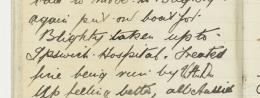 again put on boat for
Blighty taken up to
Ipswich Hospital. Treated
fine being run by
up feeling better, all Aussies